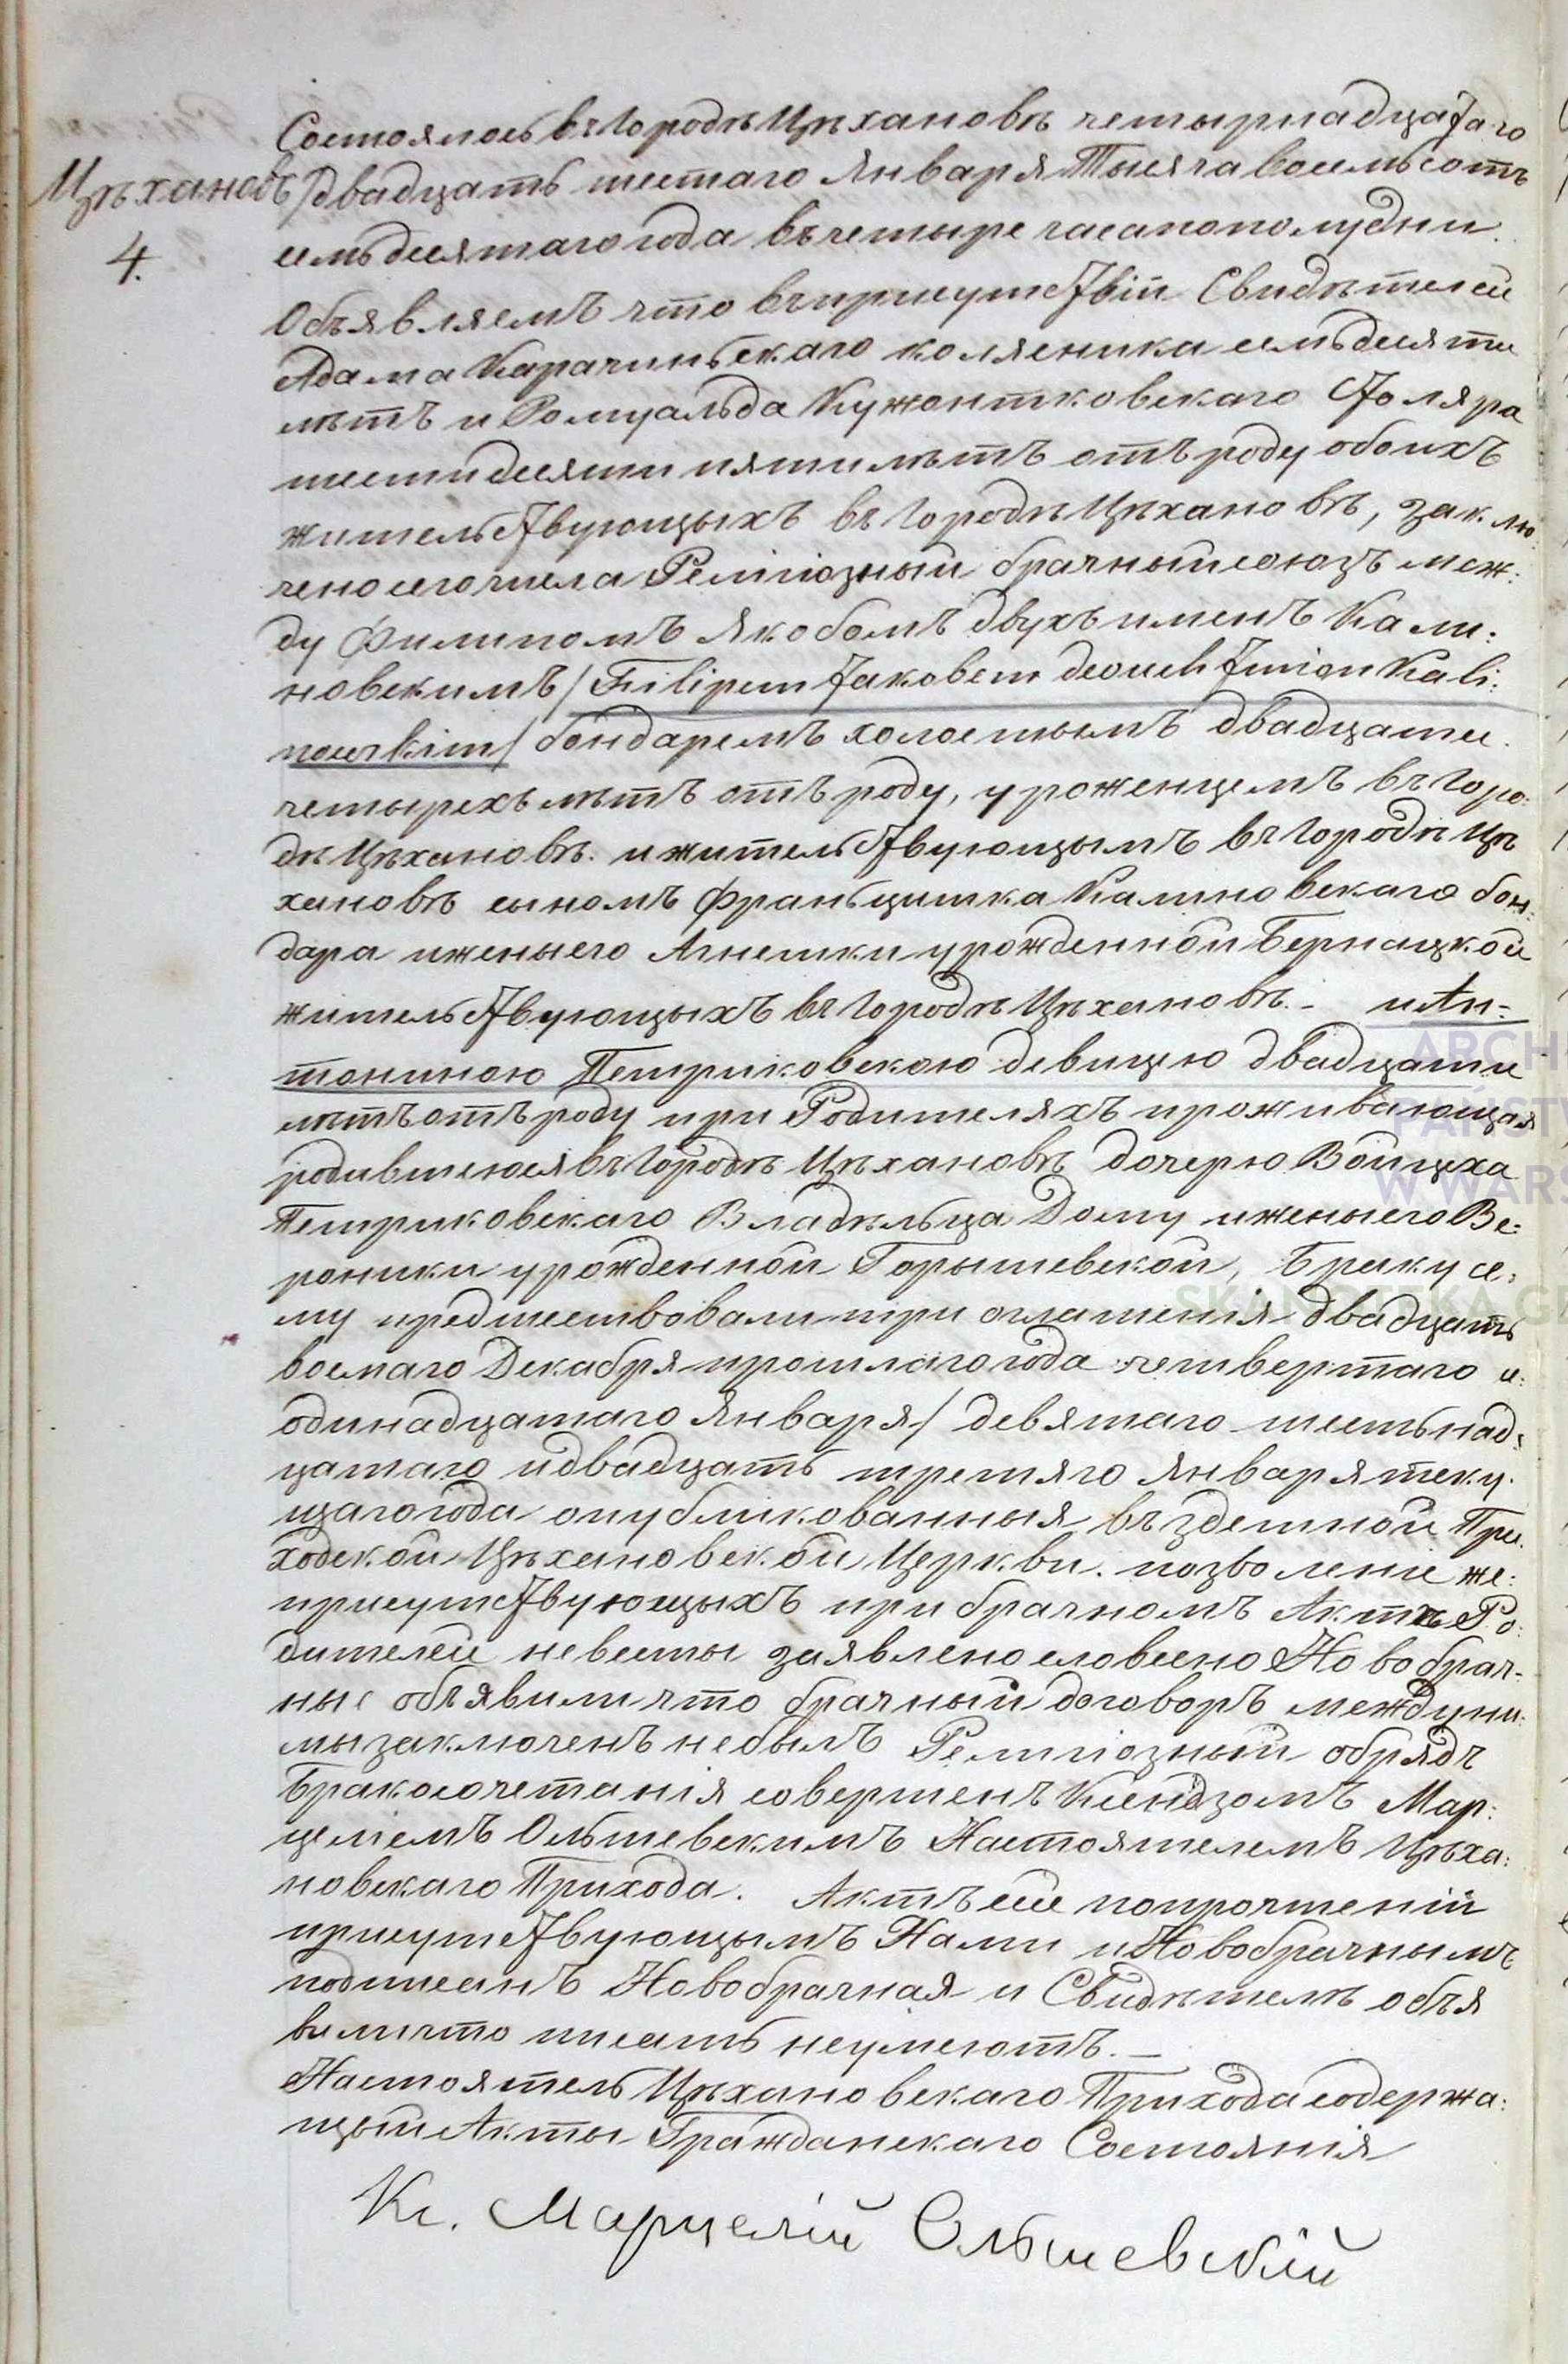 Состоялось въ Городѣ Цѣхановѣ четырнадцатаго
Цѣхановъ /двадцать шестаго Января Тысяча восемьсотъ
4.
семьдесятаго года въ четыре часа пополудни.
Объявляемъ что въ присутствіи Свидѣтелей
Адама Карачинбскаго коляесника семьдесяти
лѣтъ и Ромуальда Кужонтковскаго Столяра
шестидесяти пяти лѣтъ отъ роду обоихъ
жительствующыхъ въ Городѣ Цѣхановѣ, заклю:
чено сего числа Религіозный брачный союзъ меж:
ду Филипомъ Якобомъ двухъ именъ Кали:
новскимъ / Filipem Jakobem dwuch Imion Kali:
nowskim / бондаремъ холостымъ двадцати
четырехъ лѣтъ отъ роду, уроженцемъ въ Горо:
дѣ Цѣхановѣ. и жительствующымъ въ Городѣ Цѣ
хановѣ сыномъ Францишка Калиновскаго бон:
дара и жены его Агнешки урожденной Бернацкой
жительствующыхъ въ Городѣ Цѣхановѣ. - и Ан=
тониною Петриковскою девицею двадцати
лѣтъ отъ роду при Родителяхъ проживающая
родившеюся въ Городѣ Цѣхановѣ дочерю Войцеха
Петриковскаго Владѣльца Дому и жены его Ве:
роники урожденной Горышевской, Браку се:
му предшествовали три оглашенія двадцать
восмаго Декабря прошлаго года четвертаго и:
одинадцатаго Января / девятаго шестьнад:
цатаго и двадцать третяго Января теку.
щаго года опубликованныя въ здешной При:
ходской Цѣхановской Церкви. позволеніе же:
присутствующыхъ при брачномъ Актѣ Ро:
дителей невесты заявлено словесно Новобрач-
ные объявили что брачный договоръ между ни:
мы заключенъ небылъ Религіозный обрядъ
Бракосочетанія совершенъ Ксендзомъ Мар:
целіемъ Ольшевскимъ Настоятелемъ Цѣха:
новскаго Прихода. Актъ сей попрочтеніи
присутствующымъ Нами и Новобрачнымъ
подписанъ Новобрачная и Свидѣтелѣ объя
вили что писать неумеютъ. -
Настоятель Цѣхановскаго Прихода содержа:
щый Акты Гражданскаго Состоянія
Кс. Марцелій Ольшевскій
ARCH
PAŃSTW
W WARS
SKANOTEKA.G